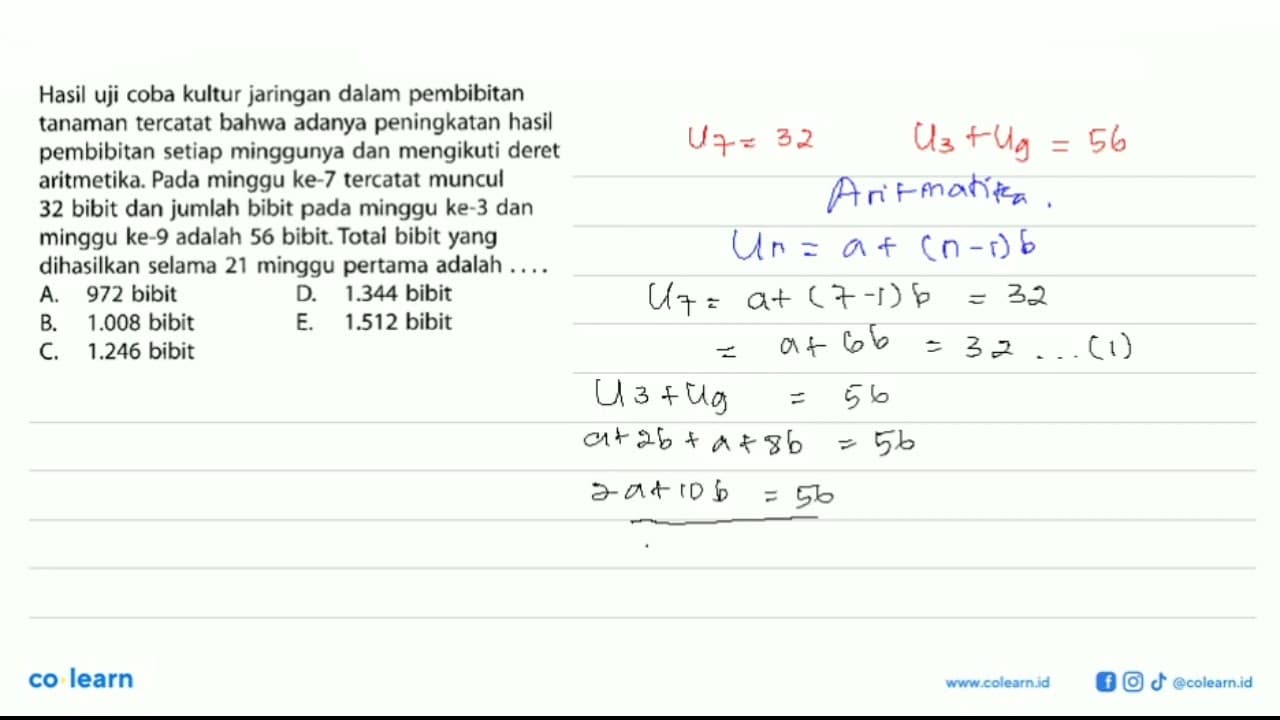 Hasil uji coba kultur jaringan dalam pembibitan
tanaman tercatat bahwa adanya peningkatan hasil
pembibitan setiap minggunya dan mengikuti deret
aritmetika. Pada minggu ke-7 tercatat muncul
32 bibit dan jumlah bibit pada minggu ke-3 dan
minggu ke-9 adalah 56 bibit. Total bibit yang
dihasilkan selama 21 minggu pertama adalah . . . .
A. 972 bibit D. 1.344 bibit
B. 1.008 bibit E. 1.512 bibit
C. 1.246 bibit
U7 = 32 U3 + U9 = 56
Aritmatika.
Un = a + (n-1)b
U7 = a + (7-1)b = 32
= a + 6b = 32 ...(1)
U3 + U9 = 56
a + 2b + a + 8b = 56
2a + 10b = 56
co learn
www.colearn.id @colearn.id